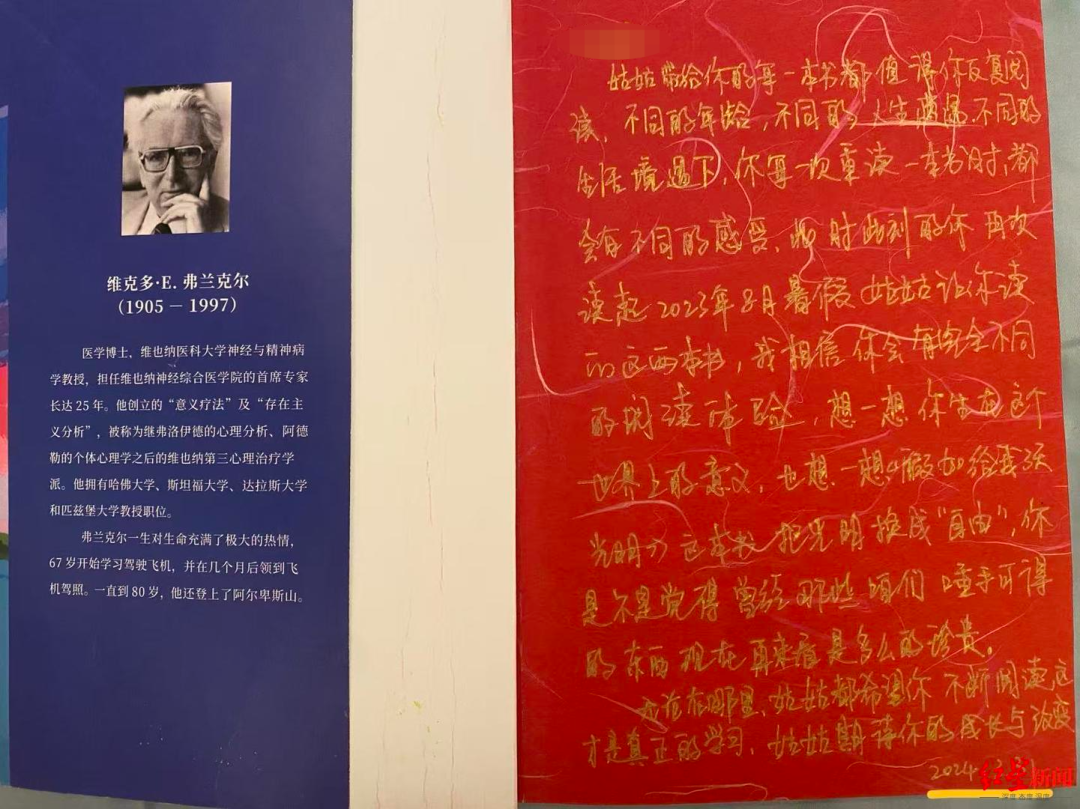 维克多·E. 弗兰克尔
(1905 — 1997)
医学博士，维也纳医科大学神经与精神病
学教授，担任维也纳神经综合医学院的首席专家
长达 25 年。他创立的“意义疗法”及“存在主
义分析”，被称为继弗洛伊德的心理分析、阿德
勒的个体心理学之后的维也纳第三心理治疗学
派。他拥有哈佛大学、斯坦福大学、达拉斯大学
和匹兹堡大学教授职位。
弗兰克尔一生对生命充满了极大的热情，
67 岁开始学习驾驶飞机，并在几个月后领到飞
机驾照。一直到 80 岁，他还登上了阿尔卑斯山。
姑姑带给你的每一本书都值得你反复阅
读，不同的年龄，不同的人生际遇，不同的
生活境遇下，你每一次重读一本书时，都
会有不同的感受，此时此刻的你再次
读起2023年8月暑假姑姑让你读
的这两本书，我相信你会有完全不同
的阅读体验，想一想你生在这个
世界上的意义，也想一想《假如给我三天
光明》这本书，把光明换成“自由”，你
是不是觉得曾经那些咱们唾手可得
的东西现在再来看是多么的珍贵。
无论在哪里，姑姑都希望你不断阅读，这
才是真正的学习，姑姑期待你的成长与改变
2024
红星新闻
深度 态度 温度